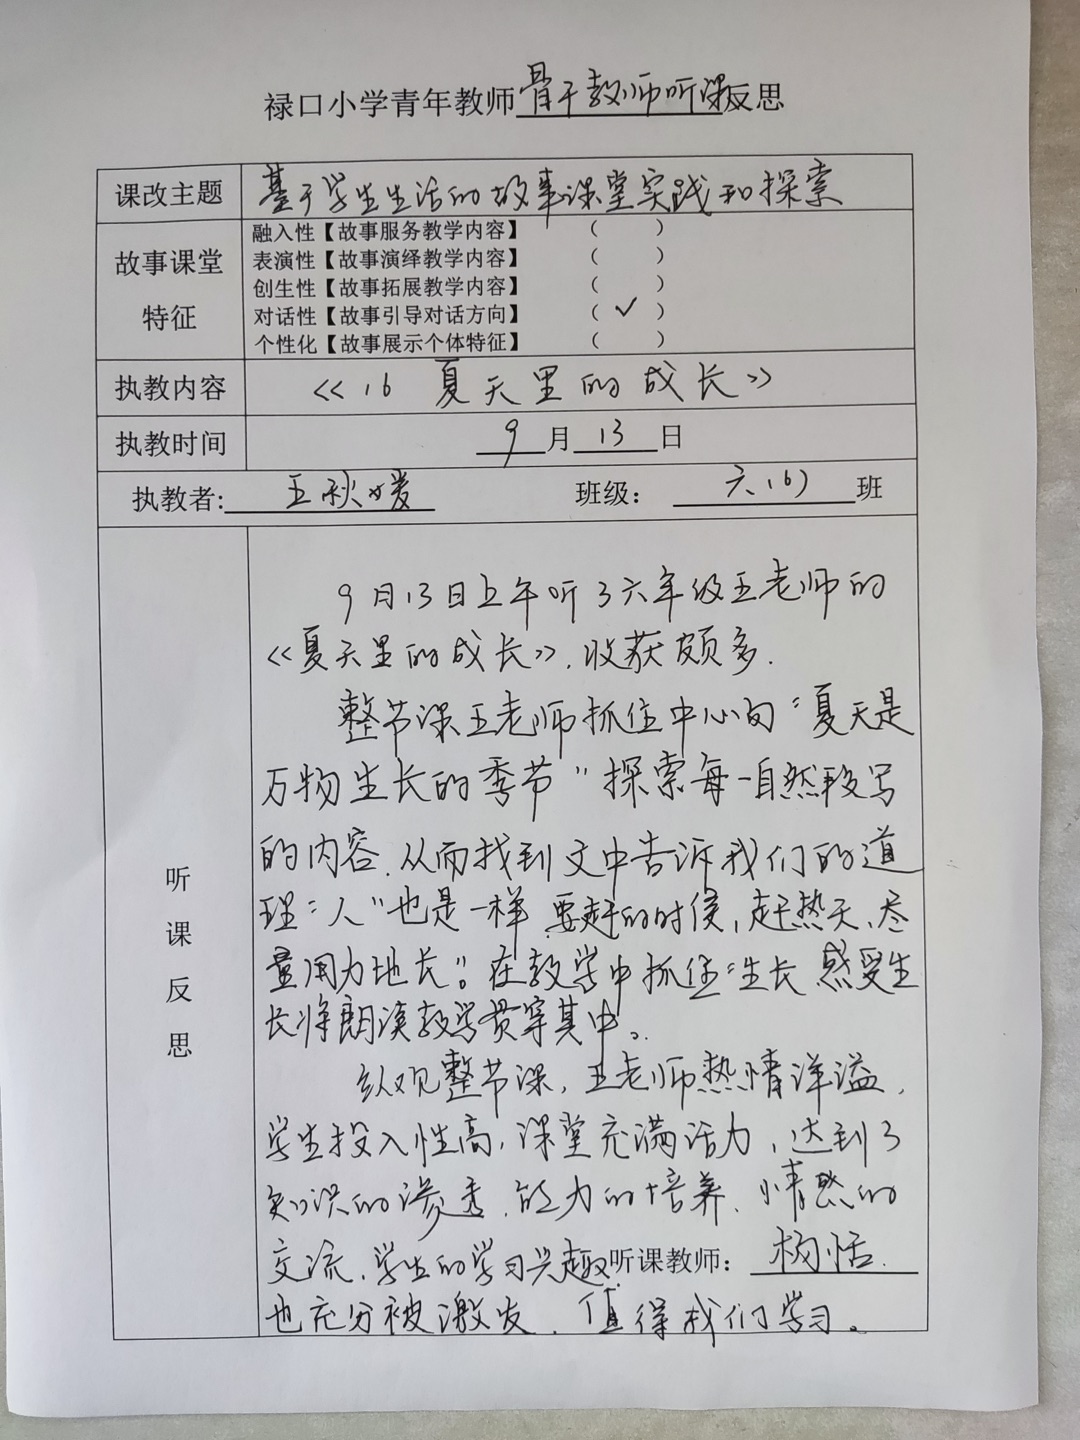 禄口小学青年教师骨干教师听课反思
课改主题 基于学生生活的故事课堂实践和探索
故事课堂
特征
融入性【故事服务教学内容】 ( )
表演性【故事演绎教学内容】 ( )
创生性【故事拓展教学内容】 ( )
对话性【故事引导对话方向】 ( ✓ )
个性化【故事展示个体特征】 ( )
执教内容 《16 夏天里的成长》
执教时间 9月13日
执教者: 王秋媛 班级: 六(6)班
听课反思
9月13日上午听了六年级王老师的
《夏天里的成长》,收获颇多.
整节课王老师抓住中心句“夏天是
万物生长的季节”探索每一自然段写
的内容,从而找到文中告诉我们的道
理:“人”也是一样 要赶的时候,赶热天、尽
量用力地长”。在教学中抓住“生长 感受生
长将朗读教学贯穿其中。
纵观整节课,王老师热情洋溢,
学生投入性高,课堂充满活力,达到了
知识的渗透、能力的培养、情感的
交流,学生的学习兴趣 听课教师: 杨恬.
也充分被激发,值得我们学习。